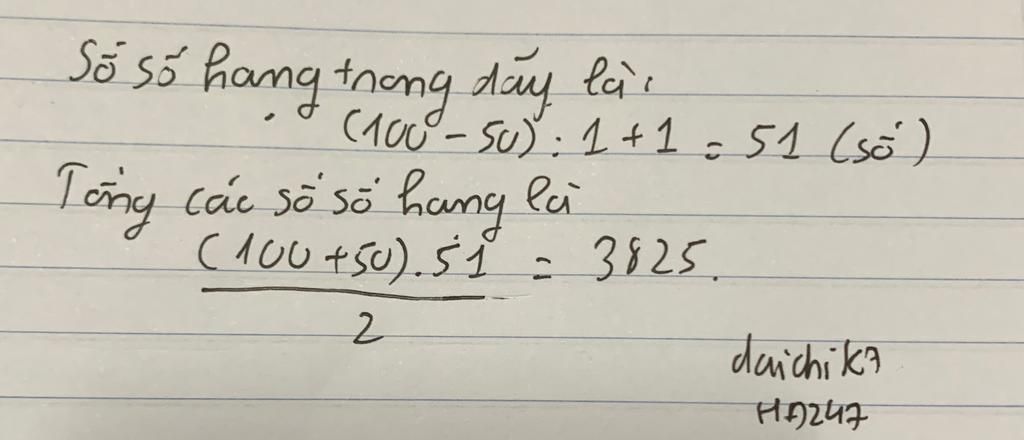 Số số hang trong dãy là:
(100 - 50) : 1 + 1 = 51 (số)
Tổng các số số hang là
(100 + 50) . 51 = 3825.
2
daichik7
HD247